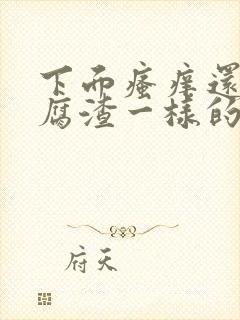 下面瘙痒還
腐渣一樣的
府天